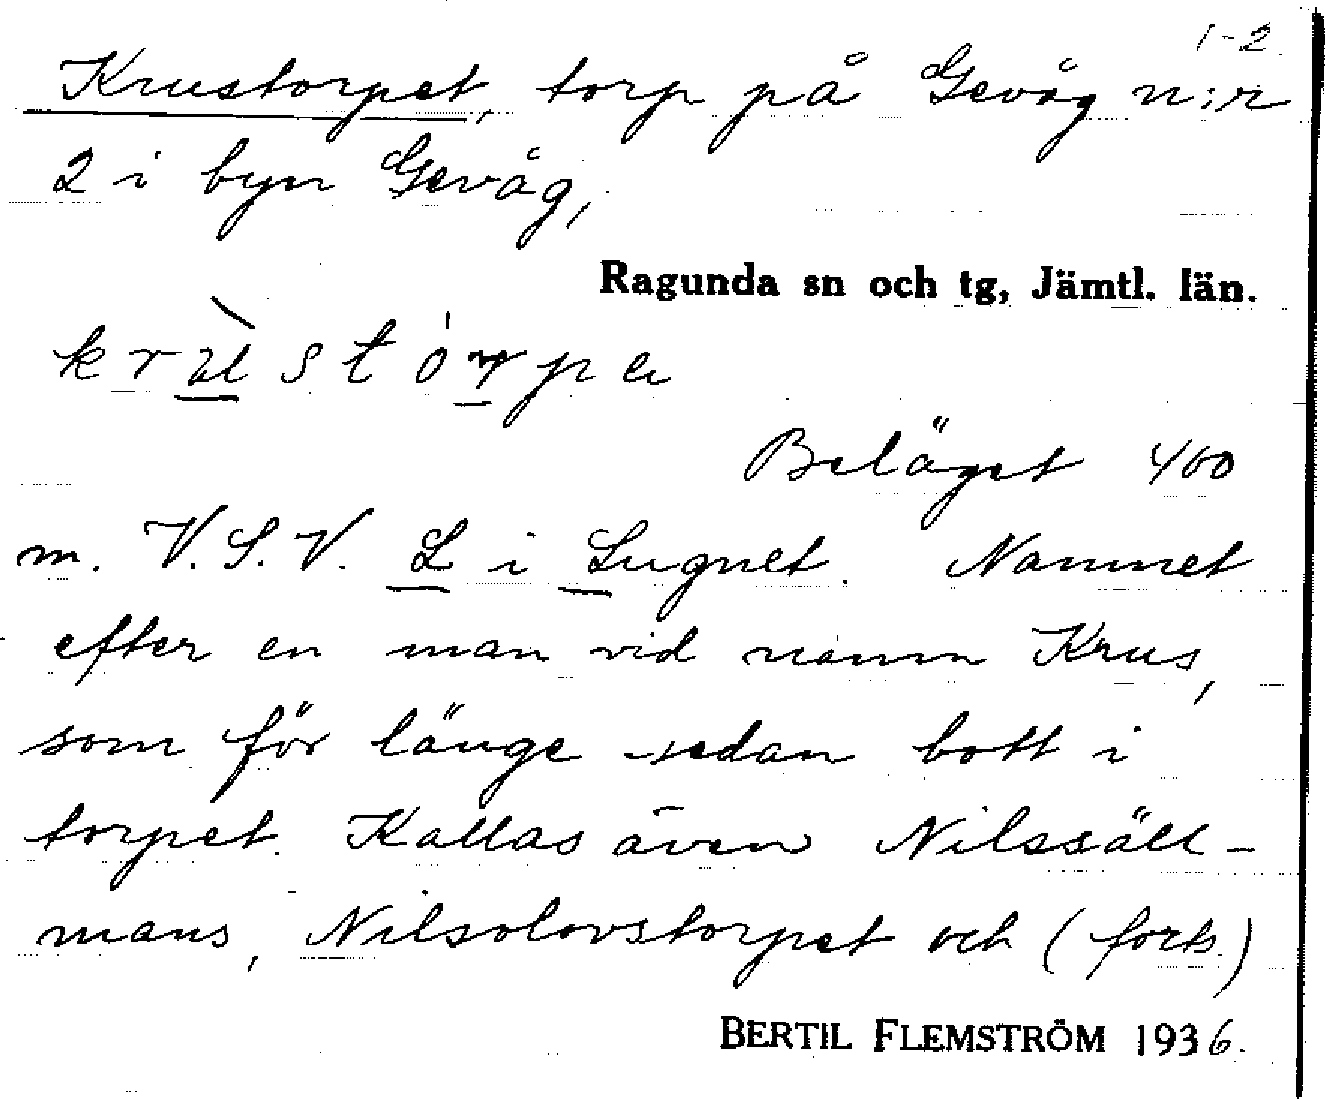 1-2
Krustorpet, torp på Gevåg n:r
2 i byn Gevåg,
Ragunda sn och tg, Jämtl. län.
krùstórpe
Beläget 400
m. V.S.V. L i Lugnet. Namnet
efter en man vid namn Krus,
som för länge sedan bott i
torpet. Kallas även Nilssäll-
mans, Nilsolovstorpet och (forts.)
BERTIL FLEMSTRÖM 1936.